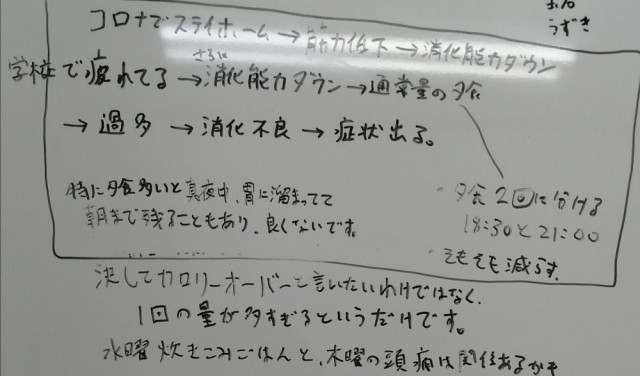 うずき
コロナでステイホーム→筋力低下→消化能力ダウン
学校で疲れてる→さらに消化能力ダウン→通常量の夕食
→過多→消化不良→症状出る。
特に夕食多いと真夜中、胃に溜まってて
朝まで残ることもあり、良くないです。
・夕食2回に分ける
18:30と21:00
・そもそも減らす。
決してカロリーオーバーと言いたいわけではなく、
1回の量が多すぎるというだけです。
水曜炊きこみごはんと、木曜の頭痛は関係あるかも